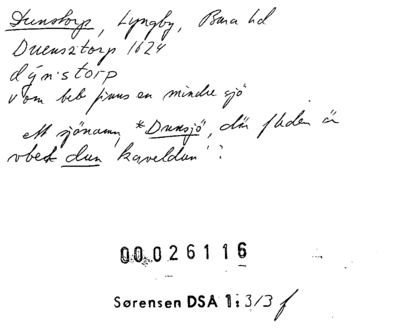 Dunstorp, Lyngby, Bara hd
Duensztorp 1624
dýn·storp
v om beb finns en mindre sjö
ett sjönamn, *Dunsjö, där fleden är
vbest dun 'kaveldun'?
00.026116
Sørensen DSA 1:3/3 f